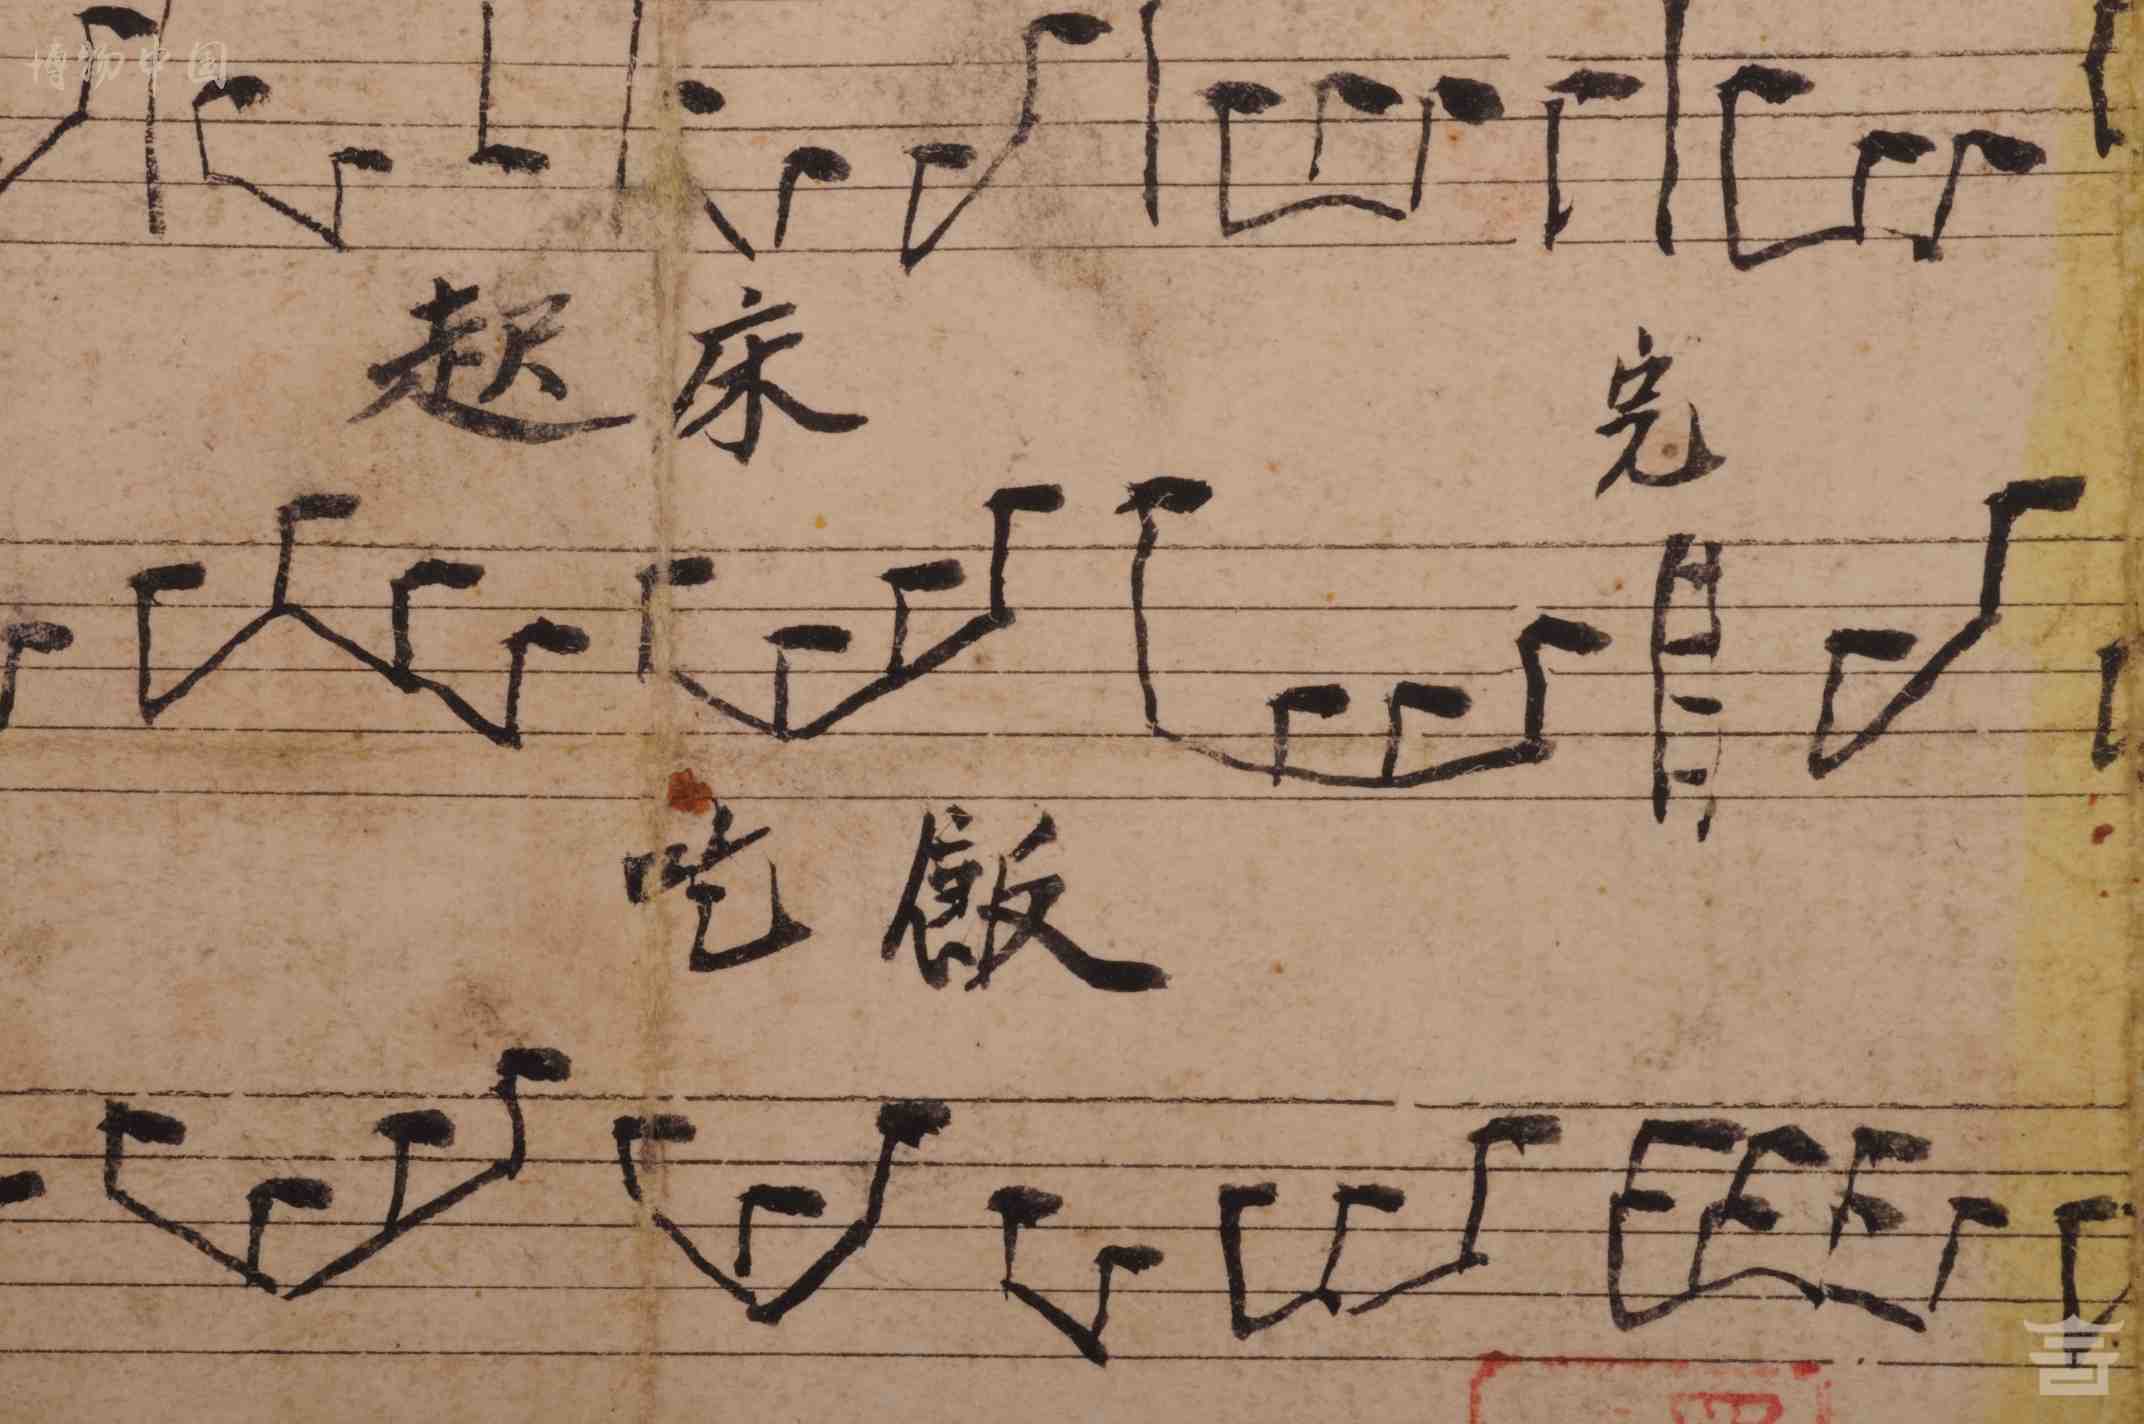 博物中国
起床
完
吃飯